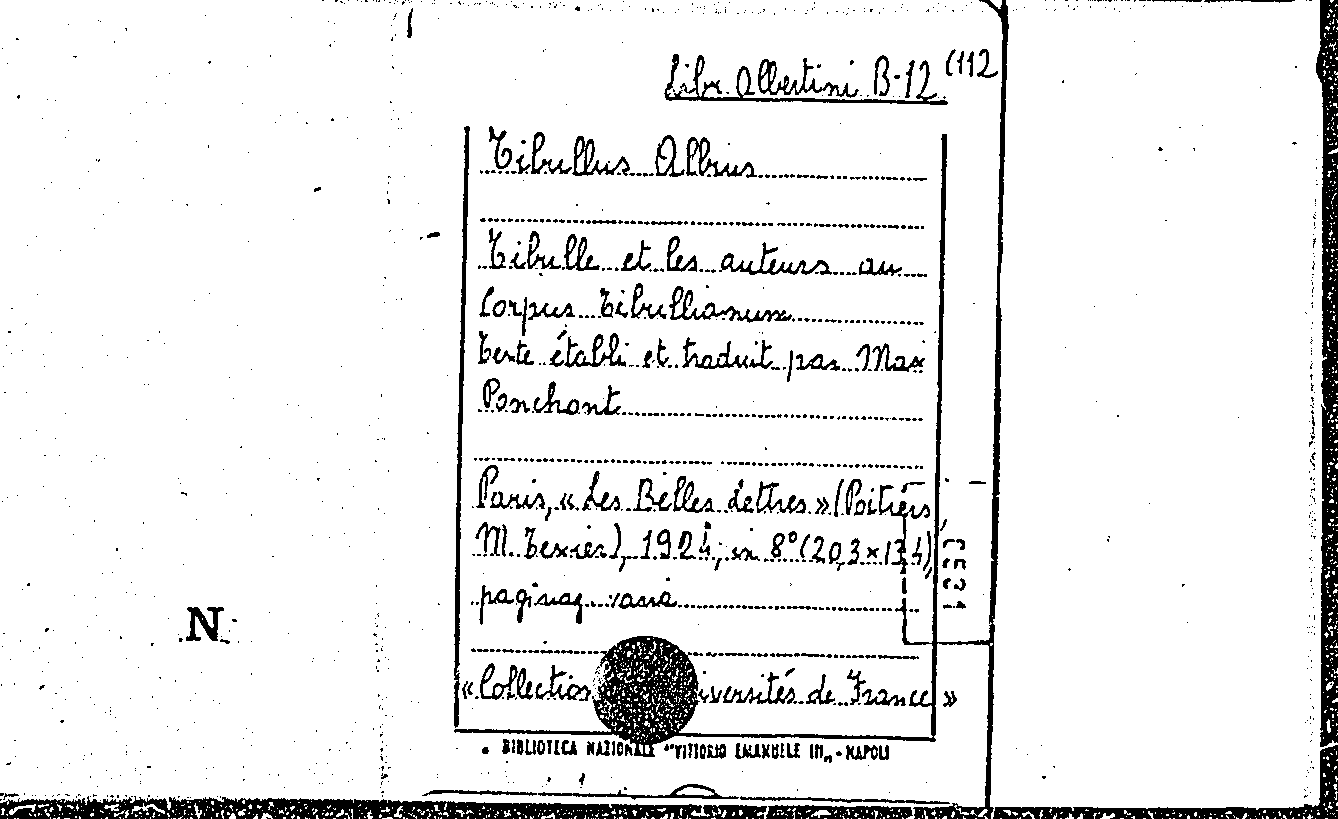 Libr. Albertini B-12 (112
Tibullus Albius
Tibulle et les auteurs du
Corpus Tibullianum
Texte établi et traduit par Max
Ponchont
Paris, « Les Belles Lettres » (Poitiers,
M. Texier), 1924, in 8° (20,3×13,4),
paginaz. varia
« Collection iversités de France »
BIBLIOTECA NAZIONALE "VITTORIO EMANUELE III„ - NAPOLI
N